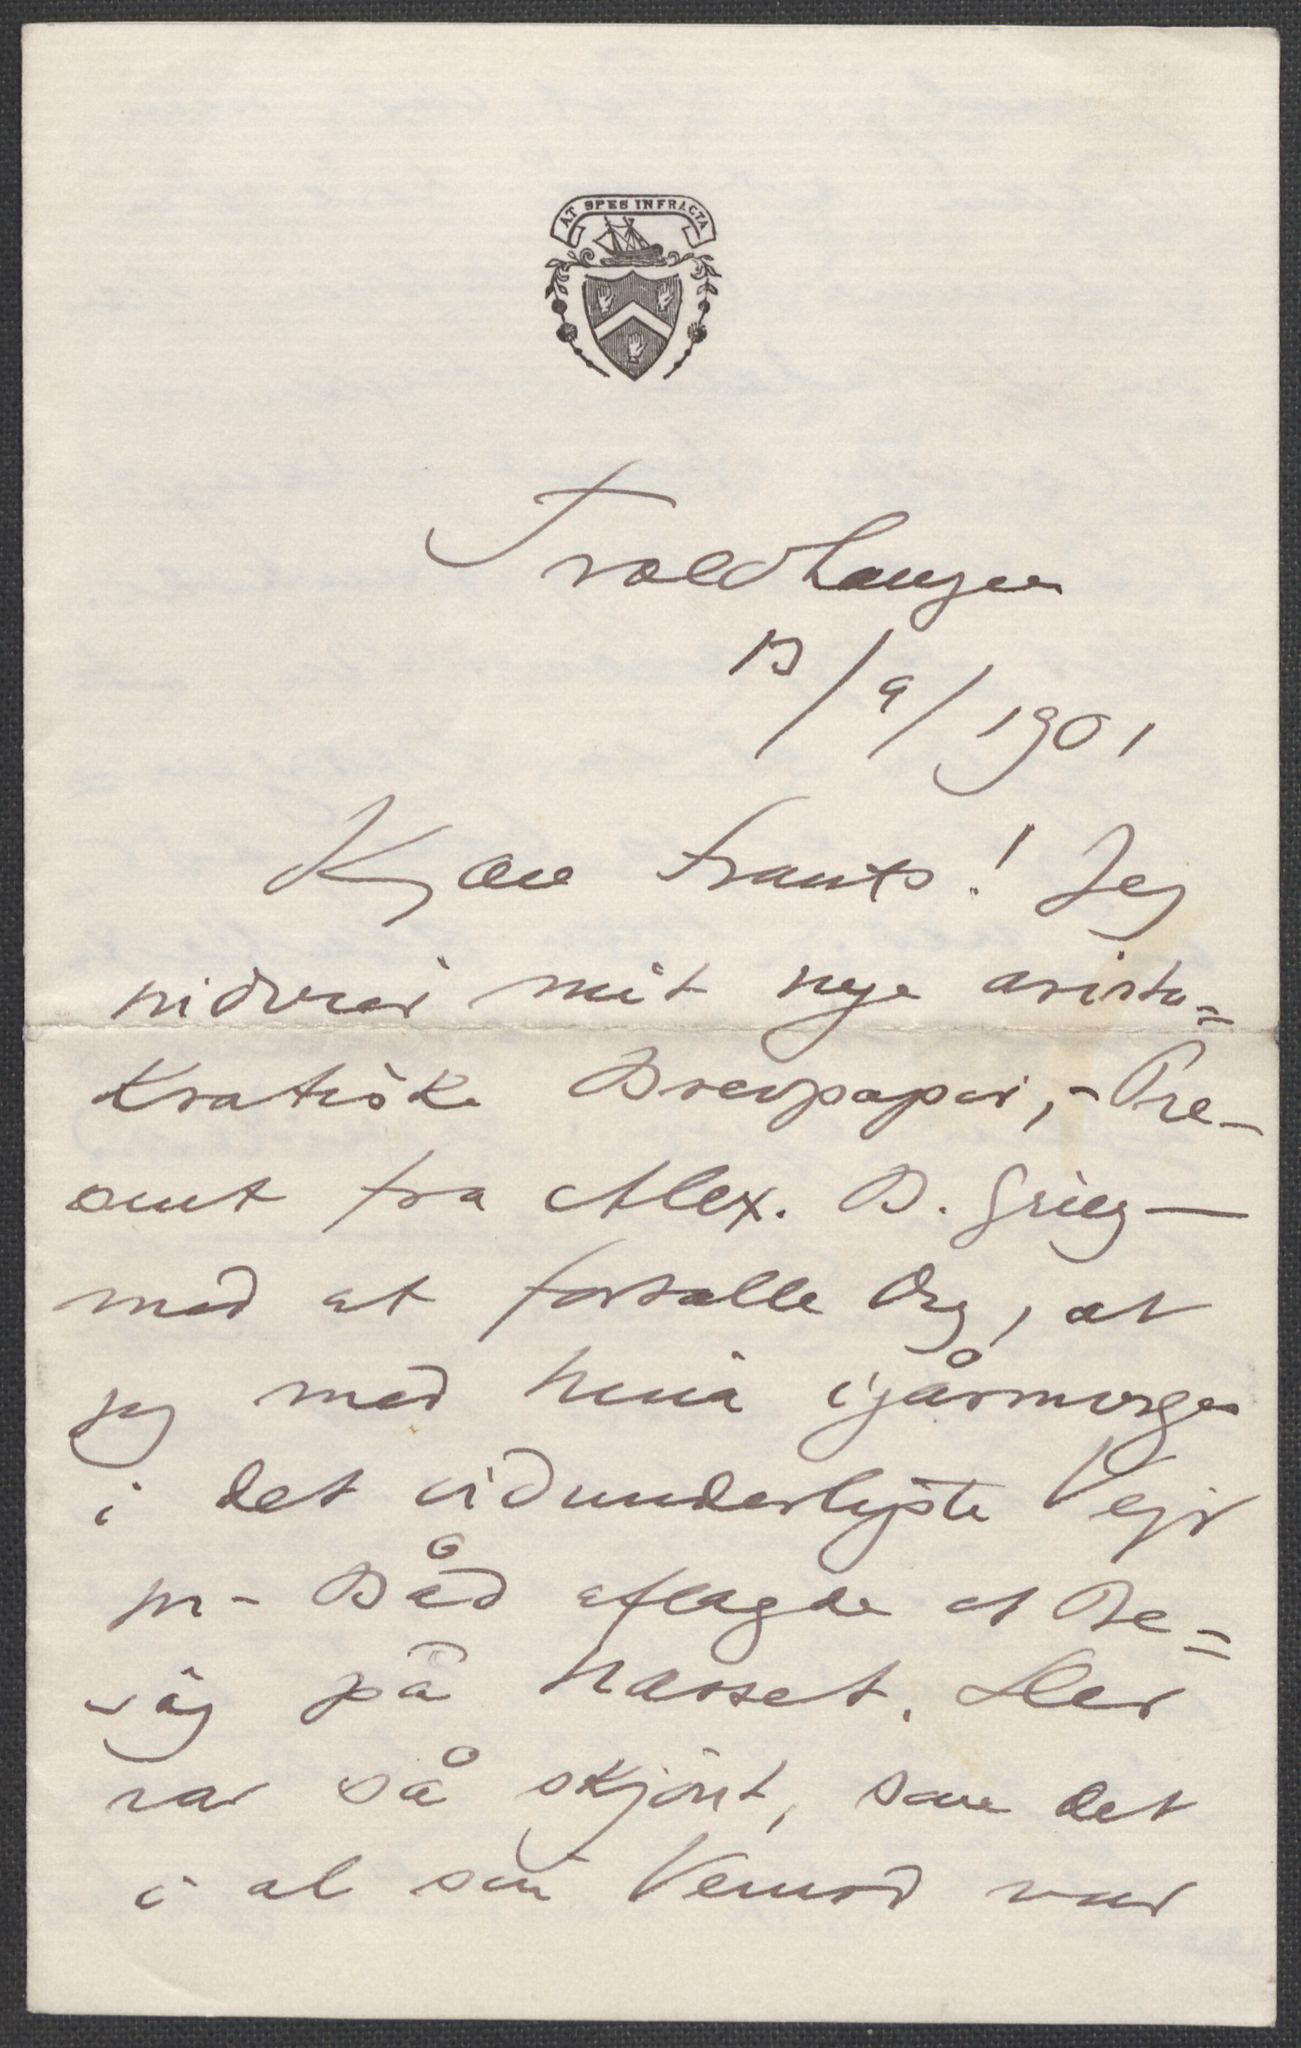 AT SPES INFRACTA
Troldhaugen
13/9/1901
Kjære Frants! Jeg
indvier mit nye aristo=
kratiske Brevpapir, - Præ-
sent fra Alex. B. Grieg —
med at fortælle Dig, at
jeg med Nina igårmorges
i det vidunderligste Vejr
pr. Båd aflagde et Be=
søg på Næsset. Her
var så skjønt, som det
i al sin Vemod var